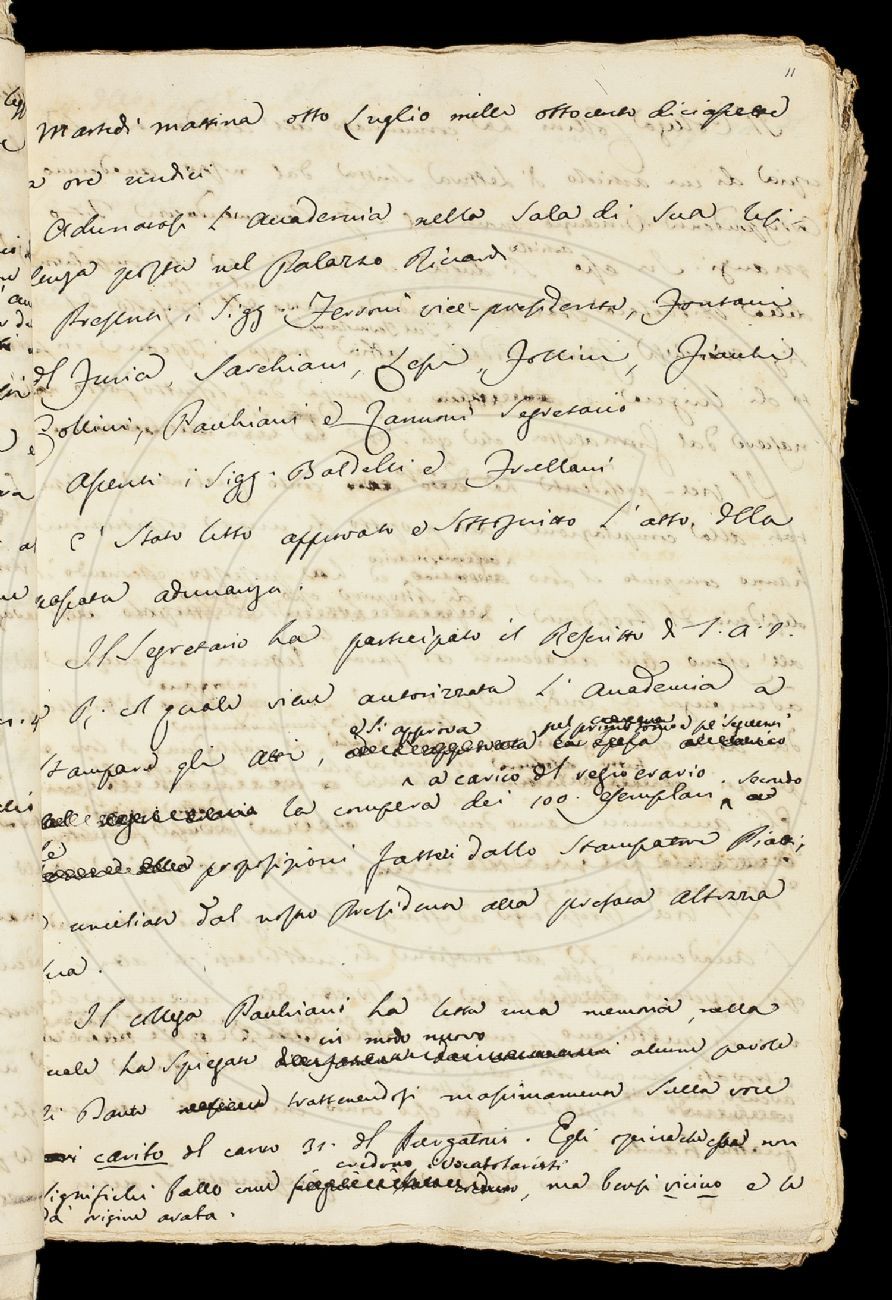 11
Martedì mattina otto Luglio mille ottocento diciassette
a ore undici
Adunatasi l'Accademia nella Sala di sua resi
denza posta nel Palazzo Riccardi
Presenti i Sigg. Ferroni vice-presidente, Fontani
del Furia, Sarchiani, Lessi, Follini, Fiacchi
Collini, Pauhiani e Zannoni Segretario
Assenti i Sigg. Baldelli e Fruellani
E' stato letto approvato e sottoscritto l'atto della
passata adunanza.
Il Segretario ha participato il Rescritto di S. A. I.
R; col quale viene autorizzata l'Accademia a
stampare gli Atti,
e si approva pel primo tomo e pe' seguenti
a carico del regio erario. secondo
la compera dei 100. esemplari
le
proposizioni fattesi dallo Stampatore Piatti,
umiliate dal nostro Presidente alla prefata Altezza
sua.
Il collega Pauhiani ha letta una memoria, nella
quale ha spiegate
in modo nuovo
alcune parole
di Dante trattenendosi massimamente sulla voce
carito del canto 31. del Purgatorio. Egli opina che essa non
significhi ballo come
credono i vocabolaristi
, ma bensì vicino e le
dà origine araba.